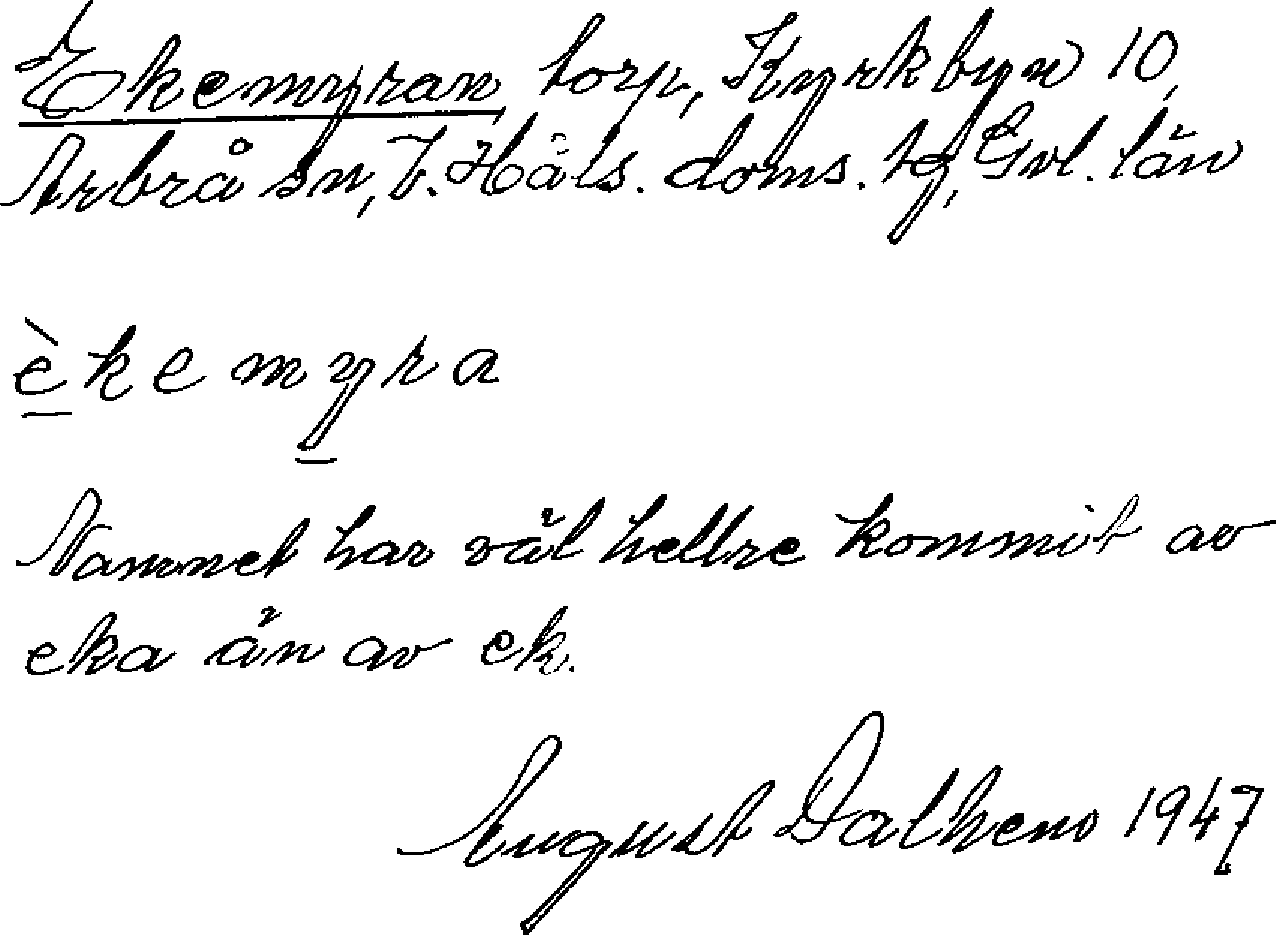 Ekemyran torp, Kyrkbyn 10,
Arbrå sn, V. Häls. doms. tg, Gvl. län
èkemyra
Namnet har väl hellre kommit av
eka än av ek.
August Dalhems 1947